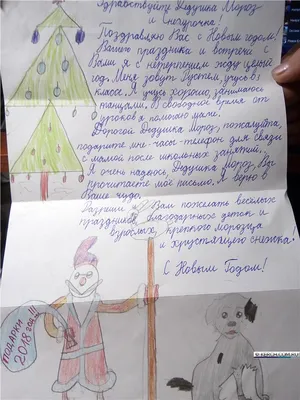 Здравствуйте Дедушка Мороз
и Снегурочка!
Поздравляю Вас с Новым годом!
Вашего праздника и встречи с
Вами я с нетерпением жду целый
год. Меня зовут Рустем, учусь в
классе. Я учусь хорошо, занимаюсь
танцами. В свободное время от
уроков я помогаю маме.
Дорогой Дедушка Мороз, пожалуйста,
подарите мне часы-телефон для связи
с мамой после школьных занятий.
Я очень надеюсь, Дедушка Мороз, Вы
прочитаете моё письмо. Я верю в
Ваше чудо.
Разреши Вам пожелать весёлых
праздников, благодарных деток и
взрослых, крепкого морозца
и хрустящего снежка.
С Новым Годом!
ПОДАРКИ
2018 год!!!
© KERCH.COM.RU